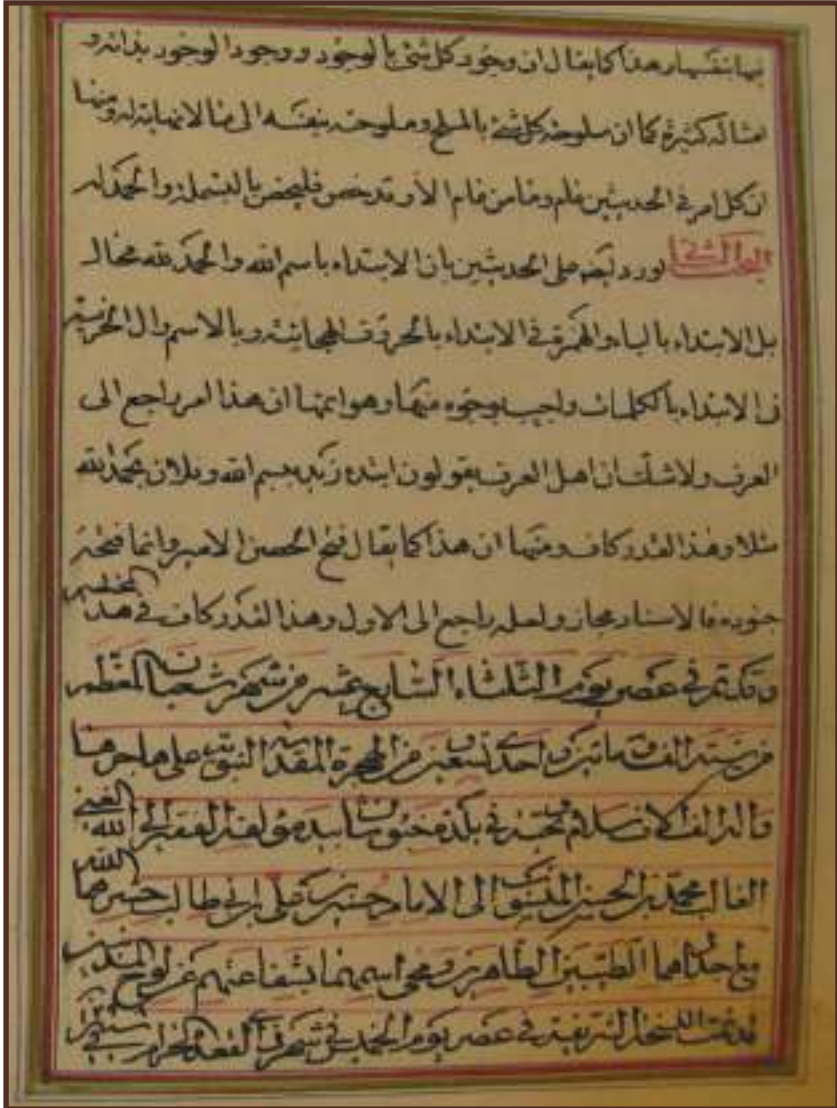 بها بنفسها وهذا كما يقال ان وجود كل شئ بالوجود ووجود الوجود بذاته و
امثاله كثيرة كما ان ملوحة كل شئ بالملح وملوحته بنفسه الى ما لا نهاية له ومنها
ان كل امر في الحديثين عام وما من عام الا وقد خص فليخص بالبسملة والحمد له
اورد ايضا على الحديثين بان الابتداء باسم الله والحمد لله محال
بل الابتداء بالباء والهمزة في الابتداء بالحروف الهجائية وبالاسم وال
في الابتداء بالكلمات واجيب بوجوه منها وهو اتمها ان هذا امر راجع الى
العرف ولا شك ان اهل العرف يقولون ابتدء زيد ببسم الله وفلان بحمد الله
مثلا وهذا القدر كاف ومنها ان هذا كما يقال فتح الحصن الامير وانما فتحه
جنوده فالاسناد مجاز ولعله راجع الى الاول وهذا القدر كاف في هذا المختصر
وقد تم في عصر يوم الثلثاء السابع عشر من شهر شعبان المعظم
من سنة الف و واحدى وتسعين من الهجرة المقدسة النبوية على هاجرها
واله الف الاف سلام وتحية في بلدة بيد مؤلفه الفقير الى الله الغني
محمد بن الحسن المنسوب الى الامام حسن بن علي بن ابي طالب حشرهما الله
مع اجدادهما الطيبين الطاهرين ومحى اسمهما بشفاعتهم عن لوح المذنبين
قد تمت النسخة الشريفة في عصر يوم الخميس في شهر ذي القعدة الحرام